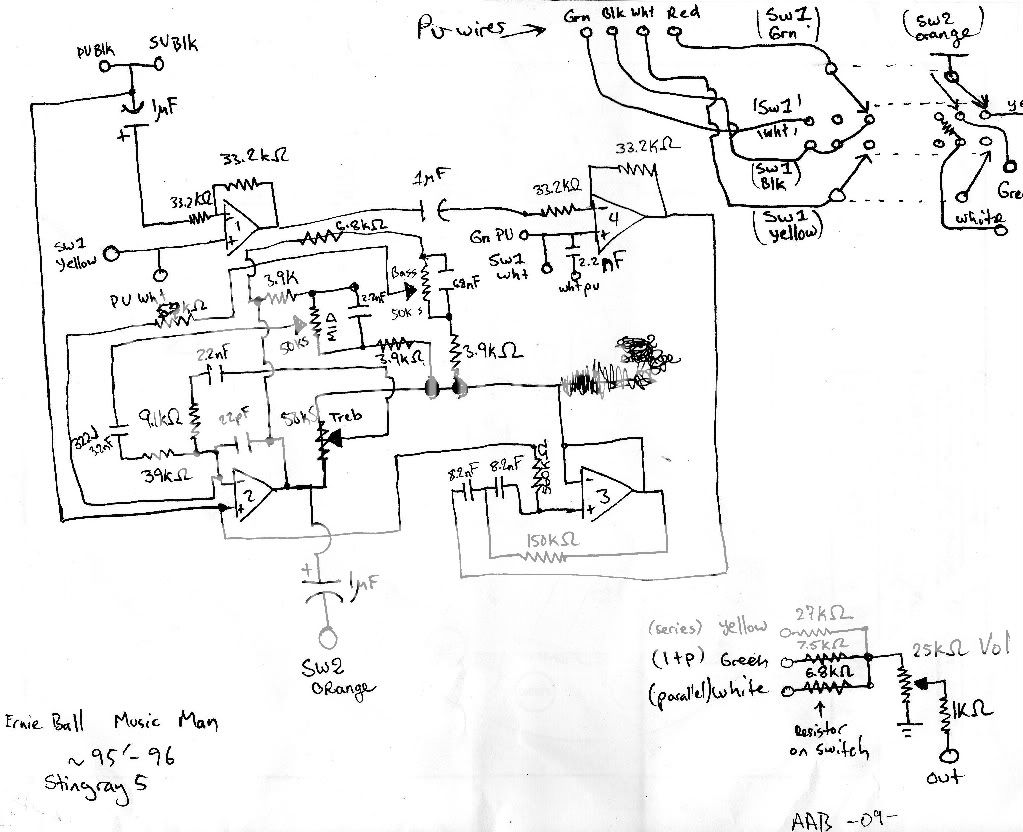 PU wires
Grn Blk Wht Red
(SW1 Grn)
(SW2 orange)
PUBlk
5VBlk
1µF
+
33.2kΩ
33.2kΩ
1
-
+
SW1 Yellow
PU Wht
6.8kΩ
1µF
33.2kΩ
33.2kΩ
4
-
+
Gn PU
SW1 wht
2.2nF
wht pu
'SW1' 'wht,
(SW1 Blk)
(SW1 yellow)
ye
Gre
white
3.9K
Bass
50kS
68nF
50kS
Mid
3.9kΩ
3.9kΩ
2.2nF
9.1kΩ
22pF
39kΩ
50kS
Treb
2
-
+
8.2nF
8.2nF
3
-
+
150kΩ
+
1µF
SW2 ORange
(series) yellow
27kΩ
(1+p) Green
7.5kΩ
(parallel) white
6.8kΩ
Resistor on Switch
25kΩ Vol
1KΩ
out
Ernie Ball Music Man
~95'-96
Stingray 5
AAB -09-